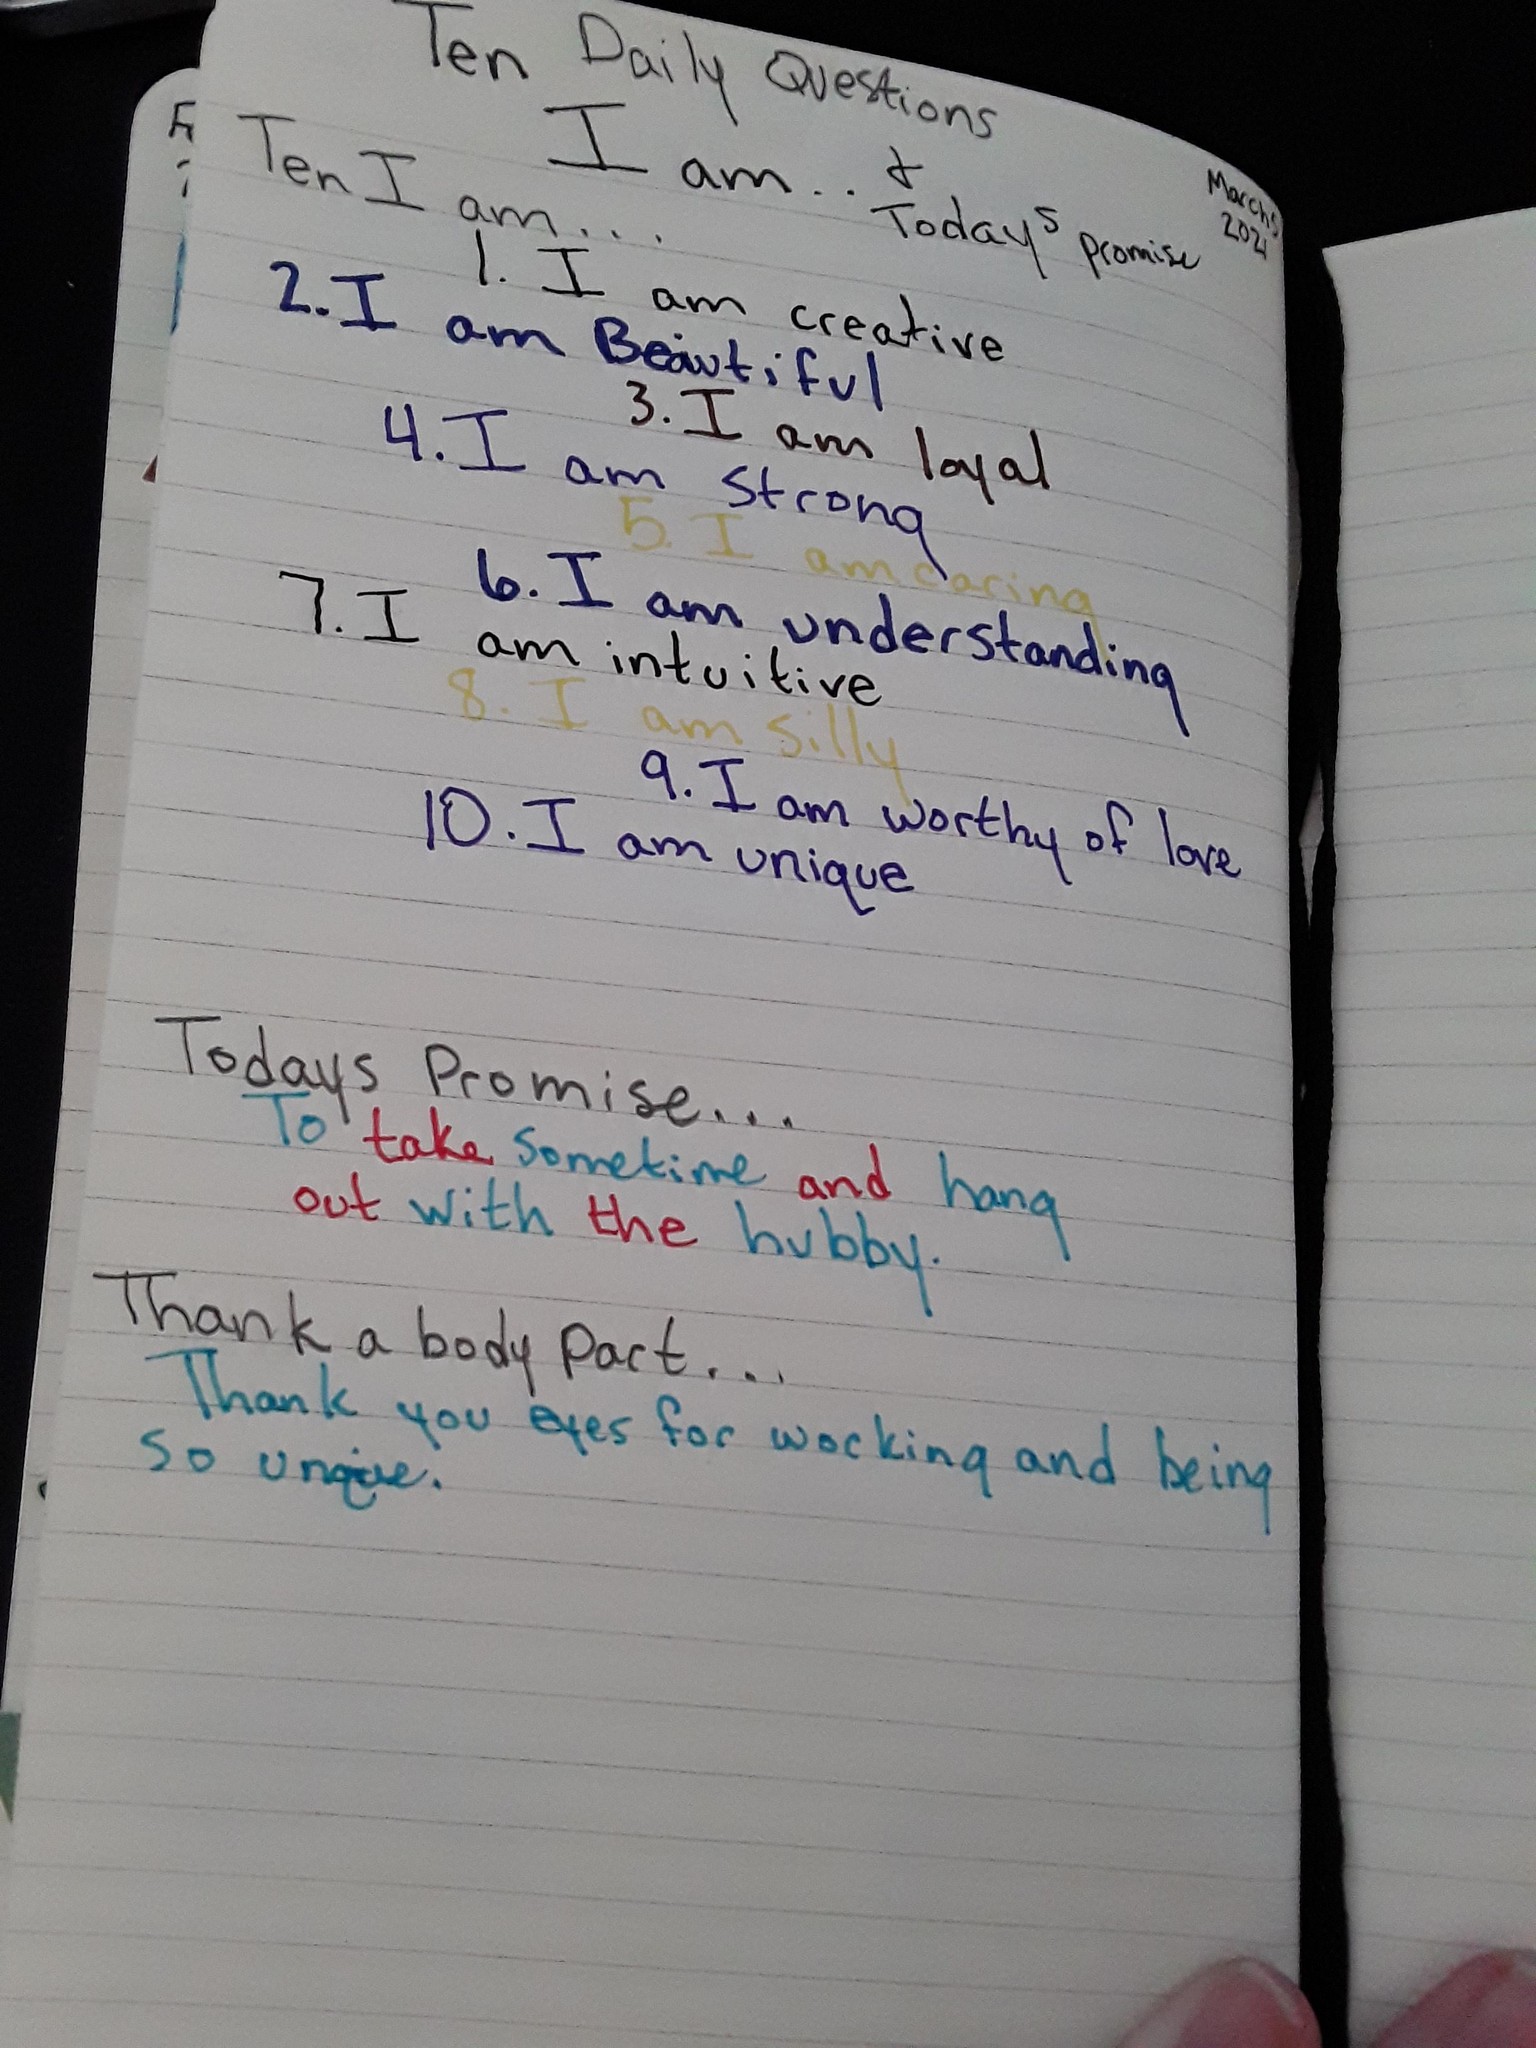 Ten Daily Questions
I am... &
Today's promise
March 5
2021
Ten I am...
1. I am creative
2. I am Beautiful
3. I am loyal
4. I am strong
5. I am caring
6. I am understanding
7. I am intuitive
8. I am silly
9. I am worthy of love
10. I am unique
Todays Promise...
To take sometime and hang
out with the hubby.
Thank a body part...
Thank you eyes for working and being
so unique.